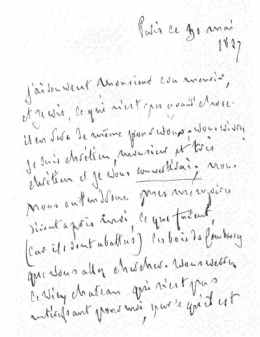 Paris ce 30 mai
1827
j'ai souvent Monsieur
et je vis, ce qui n'est pas grand chose
il en sera de même pour vous. vous
je suis chrétien, monsieur et très
chrétien et je vous convertirai; nous
nous entendrons. mes mémoires
diront après moi, ce que furent,
(car ils sont abattus) ces bois de Combourg
que vous allez chercher. Vous verrez
ce vieux chateau, qui n'est pas
intéressant pour moi, parce qu'il est